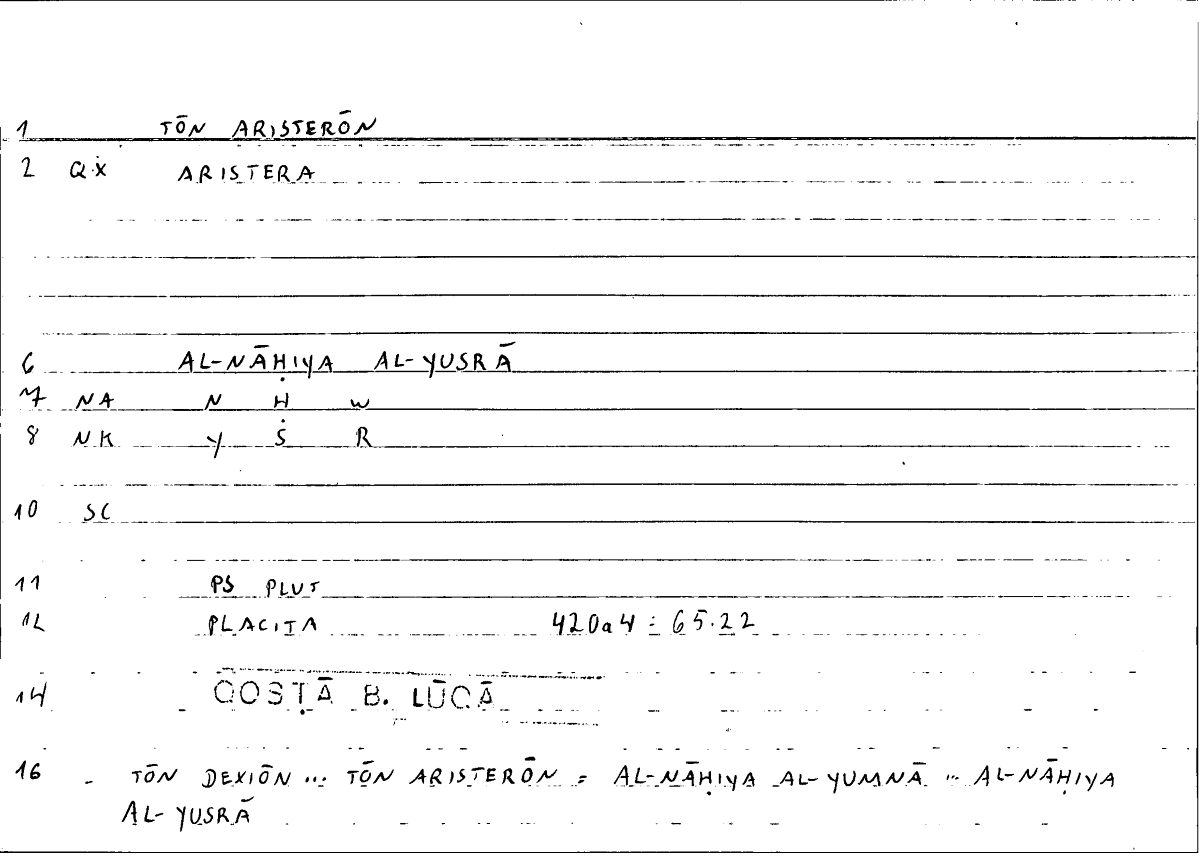 1 TŌN ARISTERŌN
2 Q.X ARISTERA
6 AL-NĀḤIYA AL-YUSRĀ
7 NA N Ḥ W
8 NK Y S R
10 SC
11 PS PLUT
12 PLACITA 420a4 = 65.22
14 QOSṬĀ B. LŪQĀ
16 - TŌN DEXIŌN ... TŌN ARISTERŌN = AL-NĀḤIYA AL-YUMNĀ ... AL-NĀḤIYA
AL-YUSRĀ